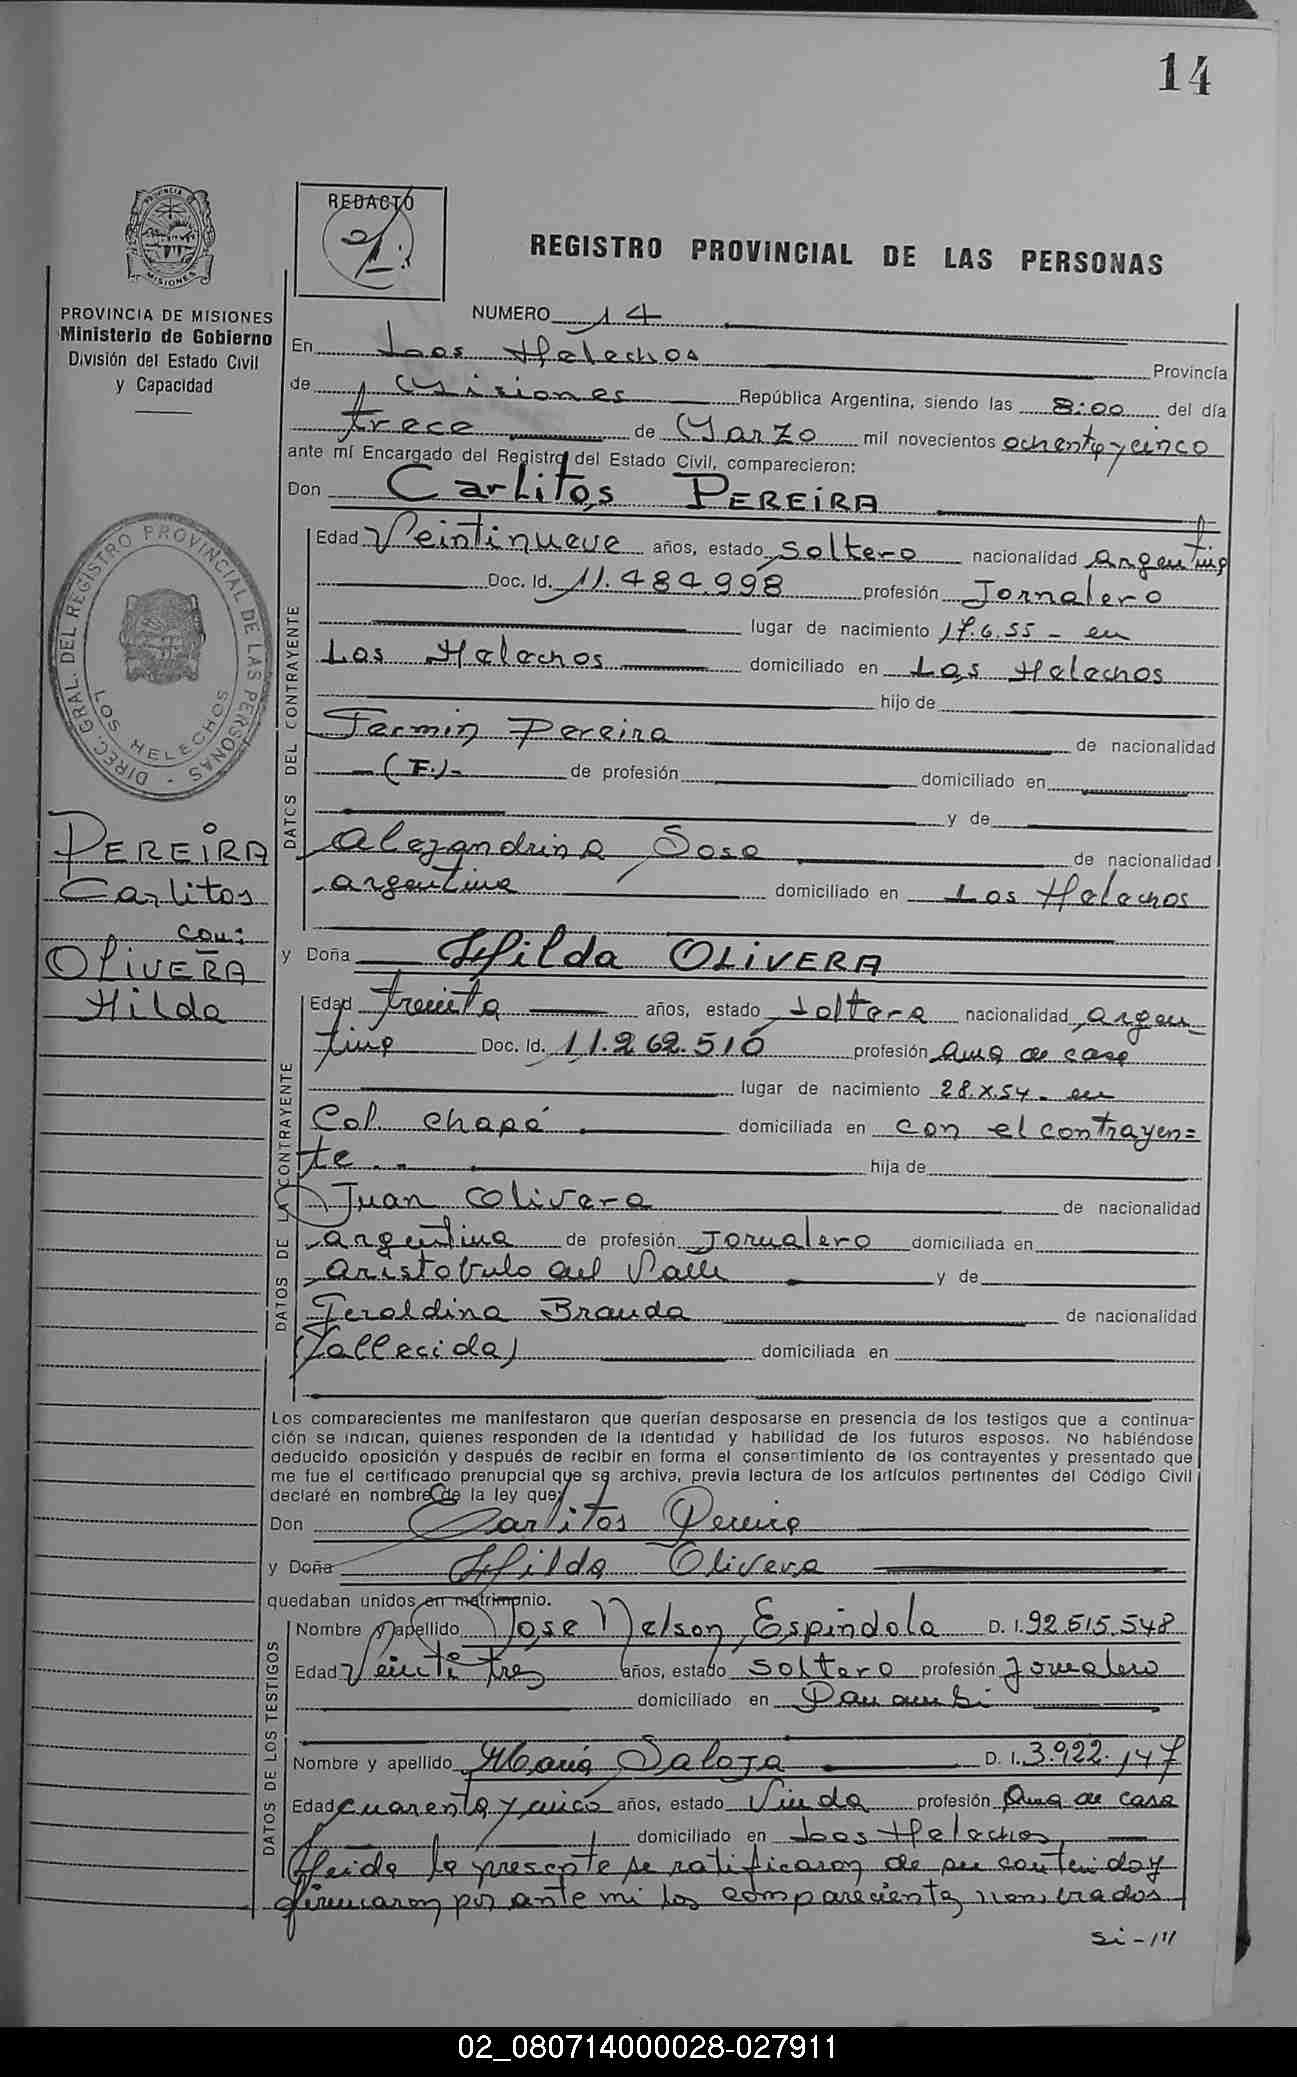 14
PROVINCIA DE MISIONES
Ministerio de Gobierno
División del Estado Civil
y Capacidad
REDACTÓ
REGISTRO PROVINCIAL DE LAS PERSONAS
NUMERO 14
En Los Helechos Provincia
de Misiones República Argentina, siendo las 8:00 del día
trece de Marzo mil novecientos ochenta y cinco
ante mí Encargado del Registro del Estado Civil, comparecieron:
Don Carlitos PEREIRA
DIREC. GRAL. DEL REGISTRO PROVINCIAL DE LAS PERSONAS -
LOS HELECHOS
PEREIRA
Carlitos
con:
OLIVERA
Hilda
DATOS DEL CONTRAYENTE
Edad Veintinueve años, estado soltero nacionalidad argentina
Doc. Id. 11.484.998 profesión Jornalero
lugar de nacimiento 17.6.55 - en
Los Helechos domiciliado en Los Helechos
hijo de
Fermin Pereira de nacionalidad
-(F.)- de profesión domiciliado en
y de
Alejandrina Sosa de nacionalidad
argentina domiciliado en Los Helechos
y Doña Hilda OLIVERA
DATOS DE LA CONTRAYENTE
Edad treinta años, estado soltera nacionalidad argen-
tina Doc. Id. 11.262.510 profesión ama de casa
lugar de nacimiento 28.X.54 - en
Col. chapá domiciliada en con el contrayen=
te.. hija de
Juan Olivera de nacionalidad
argentina de profesión Jornalero domiciliada en
aristobulo del Valle y de
Geraldina Branda de nacionalidad
(fallecida) domiciliada en
Los comparecientes me manifestaron que querían desposarse en presencia de los testigos que a continua-
ción se indican, quienes responden de la identidad y habilidad de los futuros esposos. No habiéndose
deducido oposición y después de recibir en forma el consentimiento de los contrayentes y presentado que
me fue el certificado prenupcial que se archiva, previa lectura de los artículos pertinentes del Código Civil
declaré en nombre de la ley que:
Don Carlitos Pereira
y Doña Hilda Olivera
quedaban unidos en matrimonio.
DATOS DE LOS TESTIGOS
Nombre y apellido Jose Nelson Espindola D. I. 92.615.548
Edad Veinti tres años, estado soltero profesión Jornalero
domiciliado en Panambi
Nombre y apellido Maria Saloja D. I. 3.922.147
Edad cuarenta y cinco años, estado Viuda profesión Ama de casa
domiciliado en Los Helechos
leida la presente se ratificaron de su contenido y
firmaron por ante mi los comparecientes nombrados
si-///
02_080714000028-027911